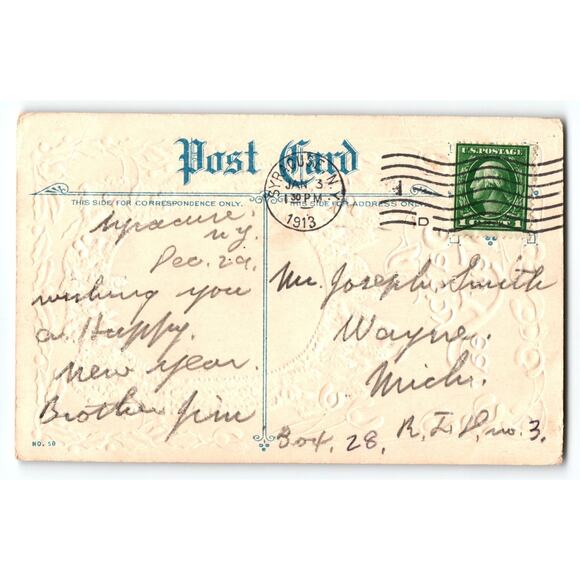 Post Card
SYRACUSE, N.Y.
JAN 3
1 30 PM
1913
D
U.S. POSTAGE
1
THIS SIDE FOR CORRESPONDENCE ONLY.
THIS SIDE FOR ADDRESS ONLY.
Syracuse,
N.Y.
Dec. 29.
wishing you
a Happy.
New year.
Brother Jim
Mr. Joseph Smith
Wayne.
Mich.
Box. 28. R. F. D. no. 3.
NO. 50